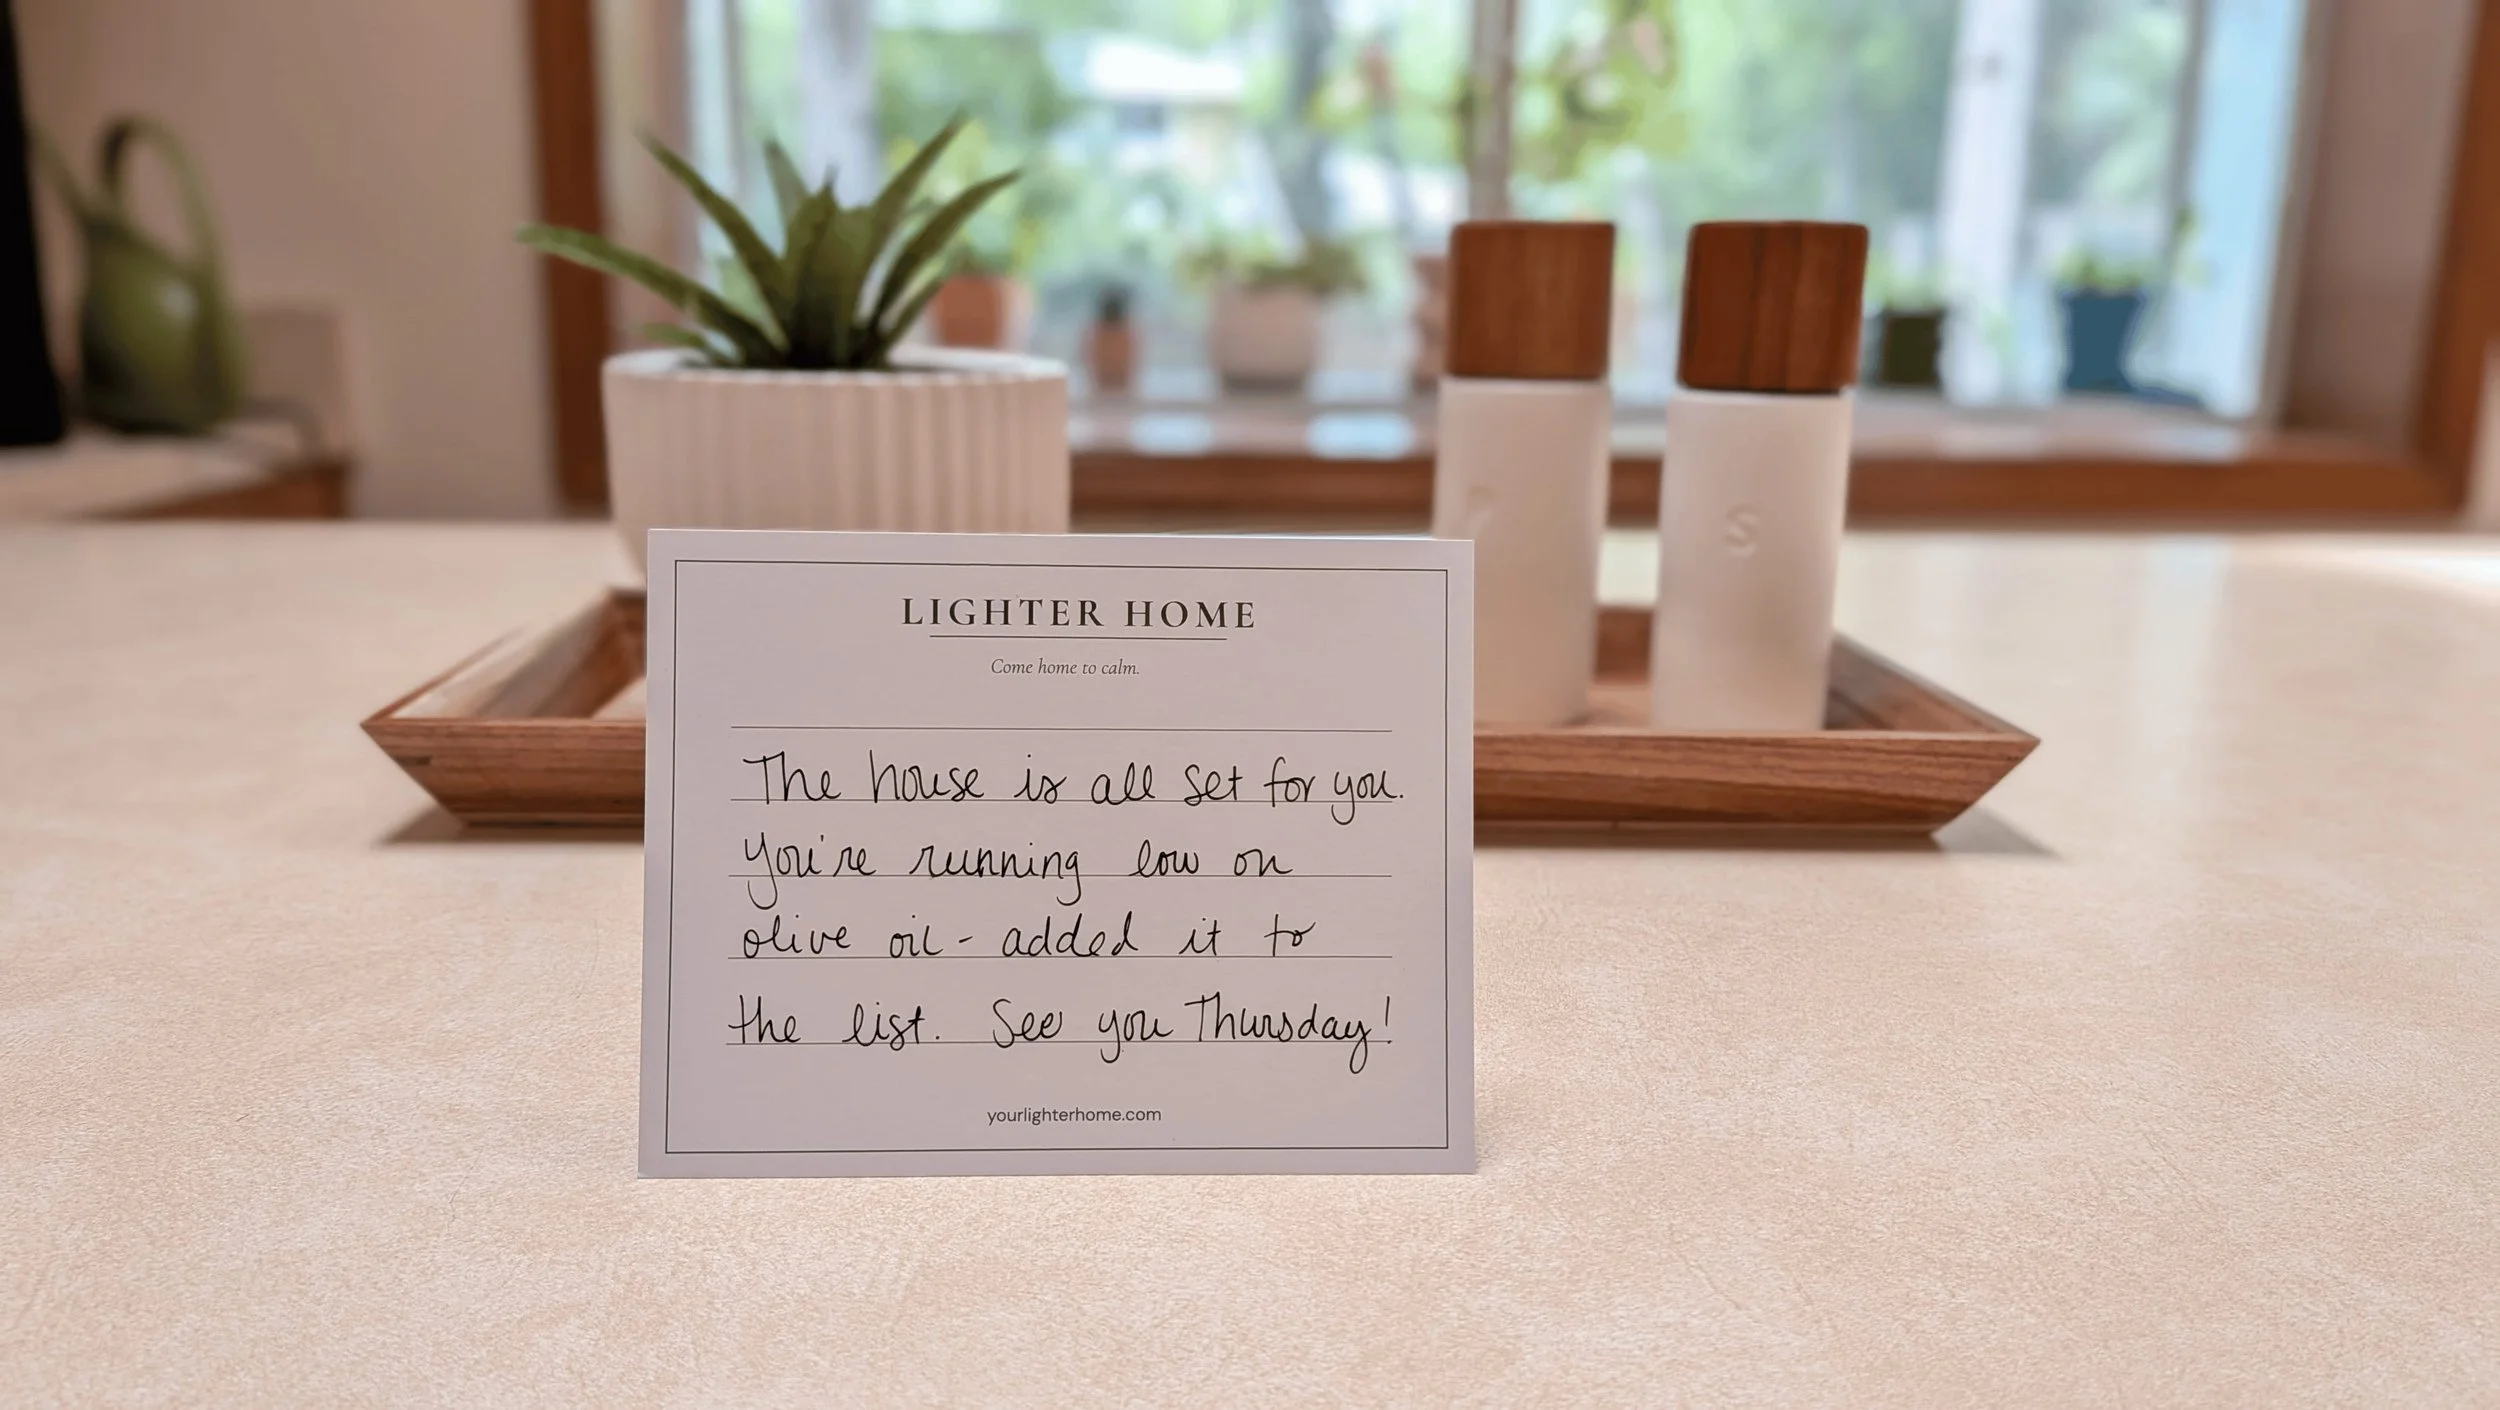 LIGHTER HOME
Come home to calm.
The house is all set for you.
You're running low on
olive oil - added it to
the list. See you Thursday!
yourlighterhome.com
S